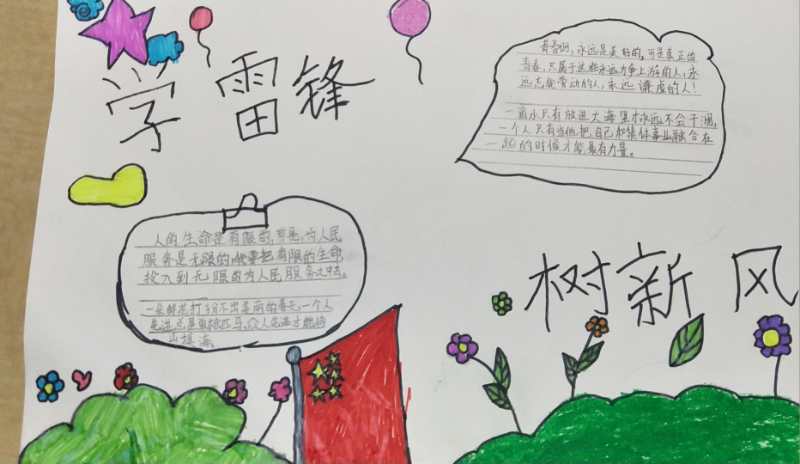 学雷锋
青春啊,永远是美好的,可是真正的
青春,只属于这些永远力争上游的人,永
远忘我劳动的人,永远谦虚的人!
一滴水只有放进大海里才永远不会干涸,
一个人只有当他把自己和集体事业融合在
一起的时候才能最有力量。
树新风
人的生命是有限的,可是,为人民
服务是无限的 我要把有限的生命
投入到无限的为人民服务之中去。
一朵鲜花打扮不出美丽的春天,一个人
先进总是单枪匹马,众人先进才能移
山填海。